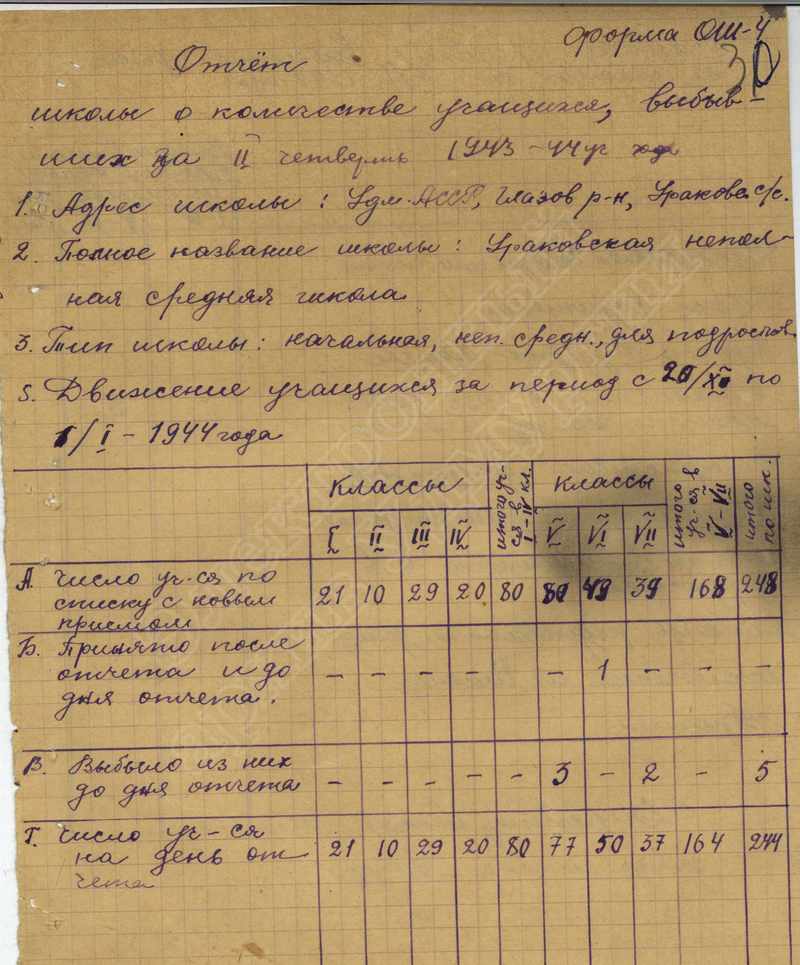 форма ОШ-4
30
Отчёт
школы о количестве учащихся, выбыв-
ших за II четверть 1943-44 уч год
1. Адрес школы: Удм.АССР, Глазов р-н, Ураковс. с/с.
2. Полное название школы: Ураковская непол-
ная средняя школа
3. Тип школы: начальная, неп. средн., для подростков
5. Движение учащихся за период с 20/XI по
1/I - 1944 года
классы итого уч-ся в I-IV кл. классы итого уч-ся в V-VII итого по шк.
I II III IV V VI VII
А. Число уч-ся по
списку с новым 21 10 29 20 80 80 49 39 168 248
приемом
Б. Принято после
отчета и до - - - - - - 1 - - -
дня отчета.
В. Выбыло из них
до дня отчета - - - - - 3 - 2 - 5
Г. Число уч-ся
на день от 21 10 29 20 80 77 50 37 164 244
чета